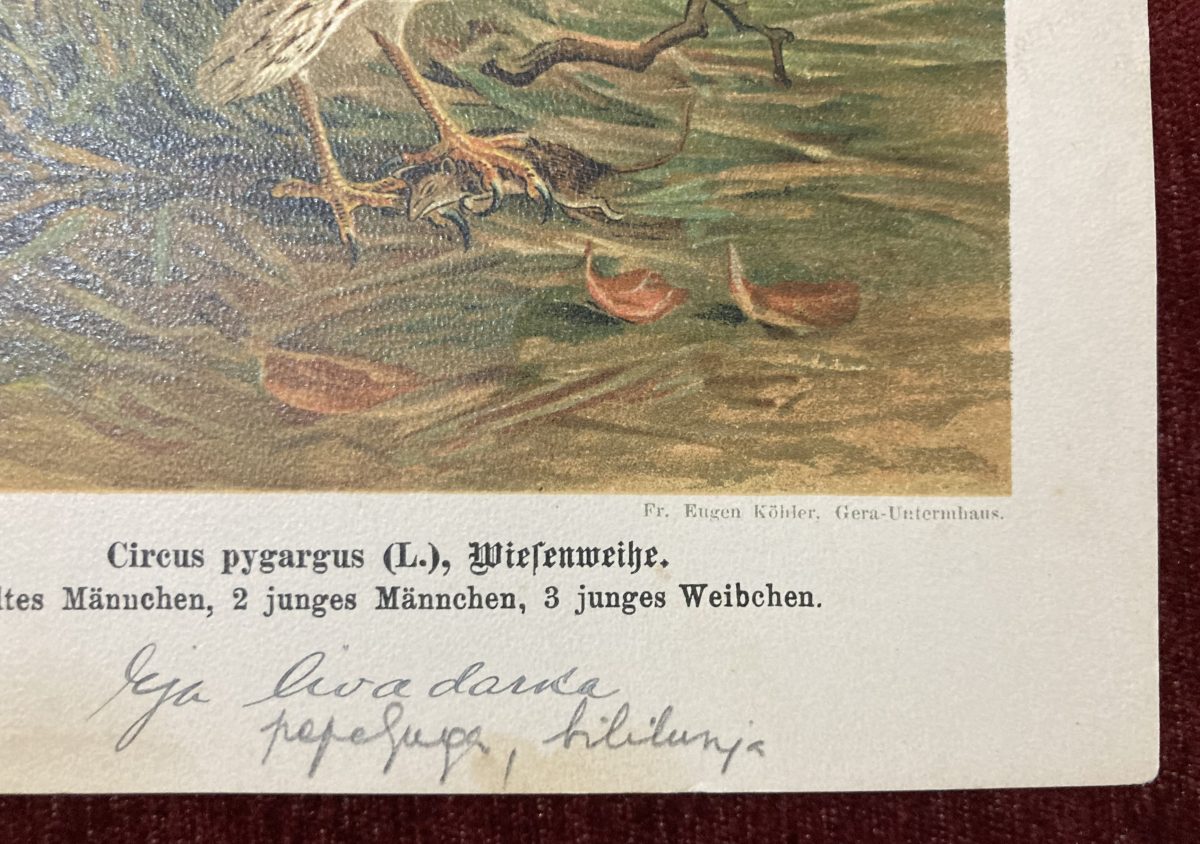 Fr. Eugen Köhler, Gera-Untermhaus.
Circus pygargus (L.), Wiesenweihe.
ltes Männchen, 2 junges Männchen, 3 junges Weibchen.
Eja livadarka
pepeljuga,